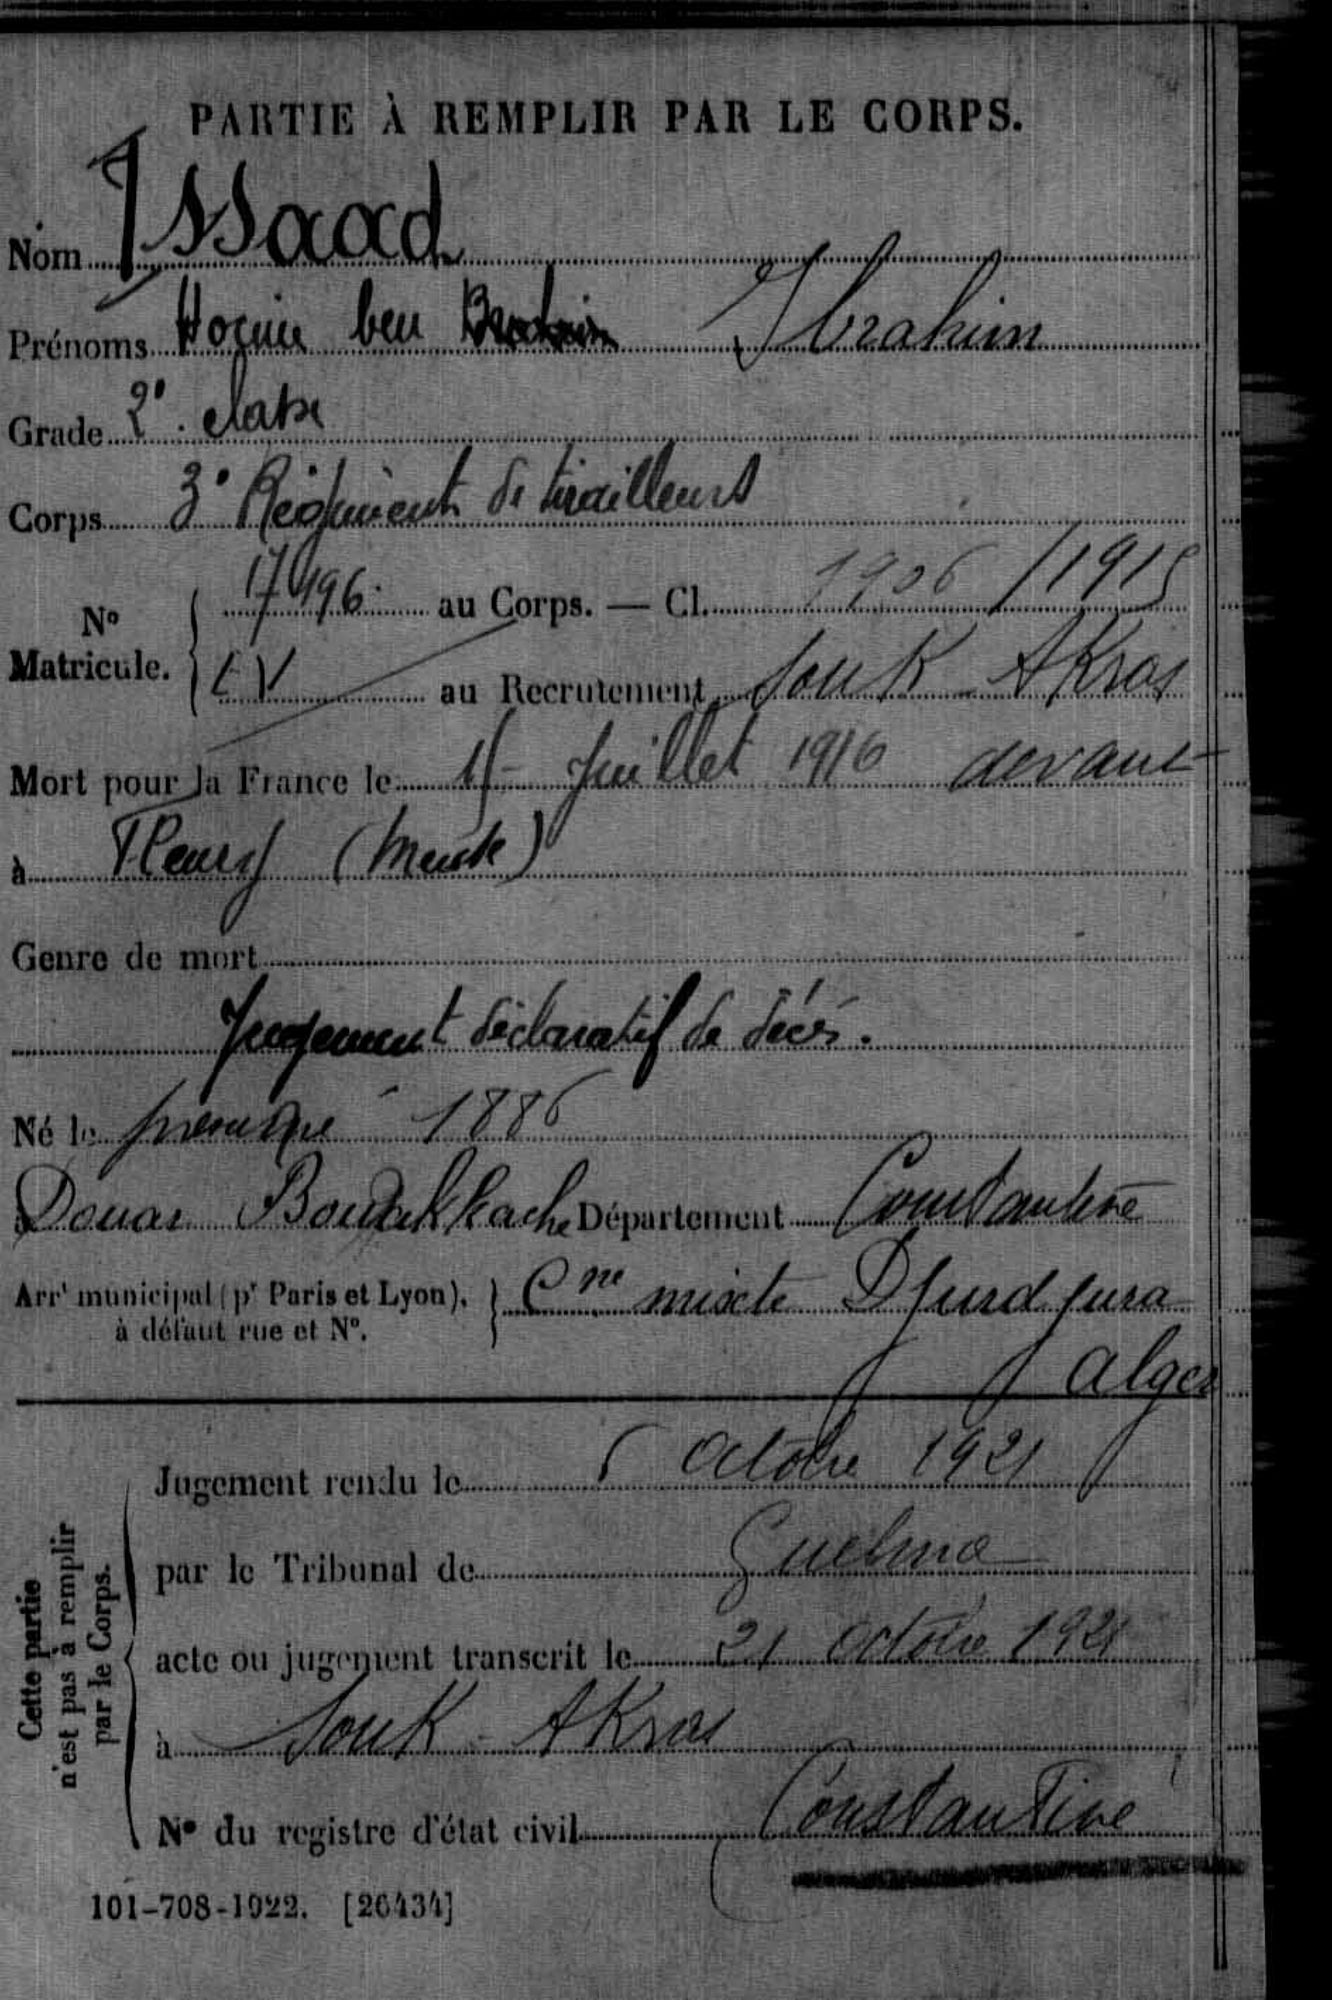 PARTIE À REMPLIR PAR LE CORPS.
Nom Issaad
Prénoms Hocine ben Ibrahim
Grade 2e classe
Corps 3e Régiment de tirailleurs
N° Matricule. 17496 au Corps. — Cl. 1906 / 1915
EV au Recrutement Souk Akras
Mort pour la France le Juillet 1916 devant
à Fleury (Meuse)
Genre de mort
Jugement déclaratif de décès.
Né le présumé 1886
Douar Département Constantine
Arrt municipal (pr Paris et Lyon), à défaut rue et N°. Cne mixte Djurdjura
Alger
Cette partie n'est pas à remplir par le Corps.
Jugement rendu le Octobre 1921
par le Tribunal de Guelma
acte ou jugement transcrit le 21 octobre 1921
à Souk-Akras
N° du registre d'état civil Constantine
101-708-1922. [26434]